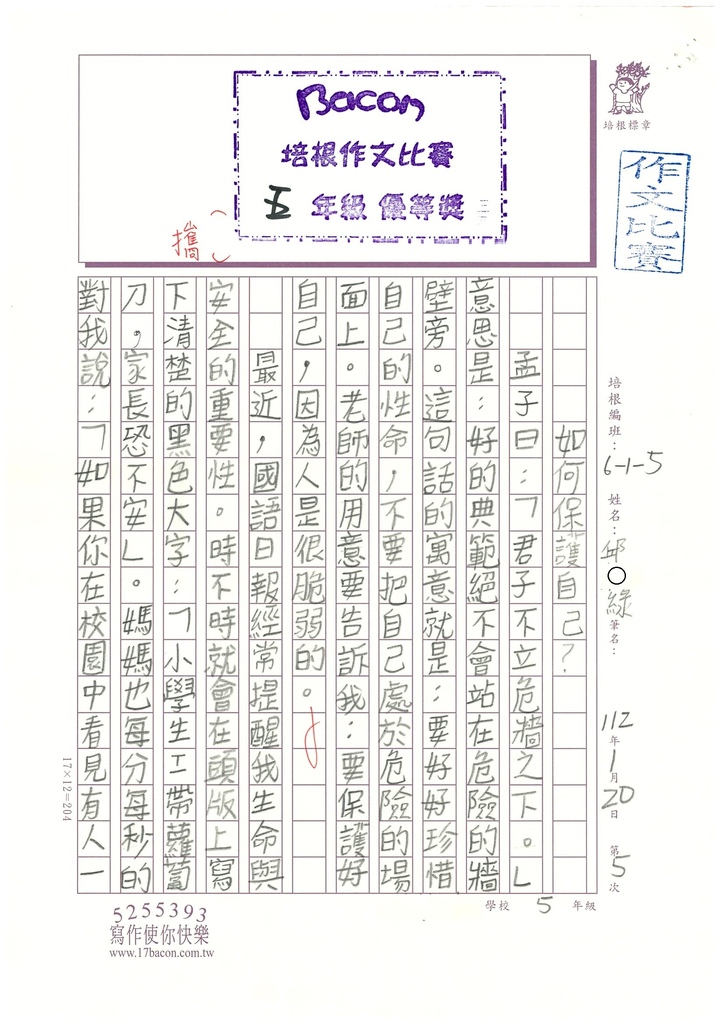 Bacon
培根作文比賽
五年級 優等獎
攜
培根標章
作文比賽
培根編班：6-1-5 姓名：邱○綠 筆名：
112年1月20日 第5次
如何保護自己？
孟子曰：「君子不立危牆之下。」
意思是：好的典範絕不會站在危險的牆
壁旁。這句話的寓意就是：要好好珍惜
自己的性命，不要把自己處於危險的場
面上。老師的用意要告訴我：要保護好
自己，因為人是很脆弱的。
最近，國語日報經常提醒我生命與
安全的重要性。時不時就會在頭版上寫
下清楚的黑色大字：「小學生工帶蘿蔔
刀，家長恐不安」。媽媽也每分每秒的
對我說：「如果你在校園中看見有人一
17×12=204
學校 5 年級
5255393
寫作使你快樂
www.17bacon.com.tw